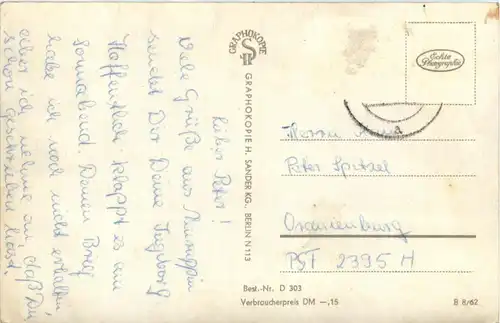 Lieber Peter!
Viele Grüße aus Neuruppin
sendet Dir Deine Ingeborg
Hoffentlich klappt es am
Sonnabend. Deinen Brief
habe ich noch nicht erhalten,
aber ich nehme an, daß Du
schon geschrieben hast.
GRAPHOKOPIE
GRAPHOKOPIE H. SANDER KG., BERLIN N 113
Echte
Photographie
Herrn
Peter Spitzel
Oranienburg
PSF 2395 H
Best.-Nr. D 303
Verbraucherpreis DM —,15
B 8/62